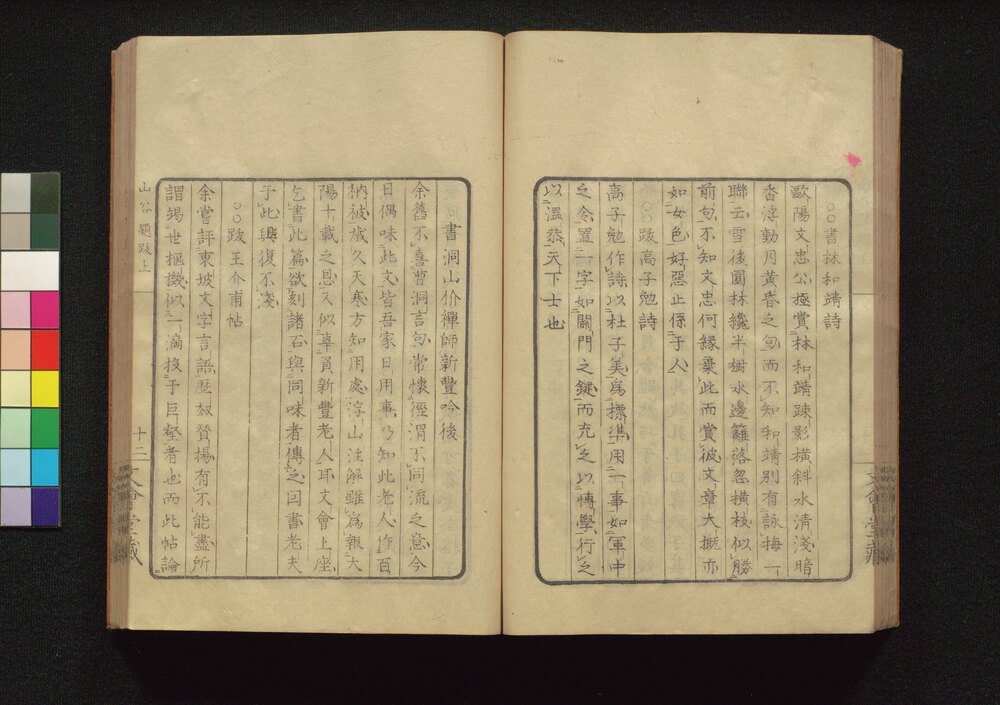 ○○書林和靖詩
歐陽文忠公極賞林和靖疎影橫斜水清淺暗
香浮動月黃昏之句而不知和靖別有詠梅一
聯云雪後園林纔半樹水邊籬落忽橫枝似勝
前句不知文忠何緣棄此而賞彼文章大槩亦
如女色好惡止係于人
○○跋高子勉詩
高子勉作詩以杜子美為標準用一事如軍中
之令置一字如關門之鍵而充之以博學行之
以溫恭天下士也
書洞山价禪師新豐吟後
余舊不喜曹洞言句常懷徑渭不同流之意今
日偶味此文皆吾家日用事乃知此老人作百
衲被歲久天寒方知用處浮山注解雖為報大
陽十載之恩又似辜負新豐老人耳文會上座
乞書此篇欲刻諸石與同味者傳之因書老夫
于此興復不淺
○○跋王介甫帖
余嘗評東坡文字言語歷劫贊揚有不能盡所
謂竭世樞機似一滴投于巨壑者也而此帖論
山谷題跋上
十二
文會堂藏
文會堂藏